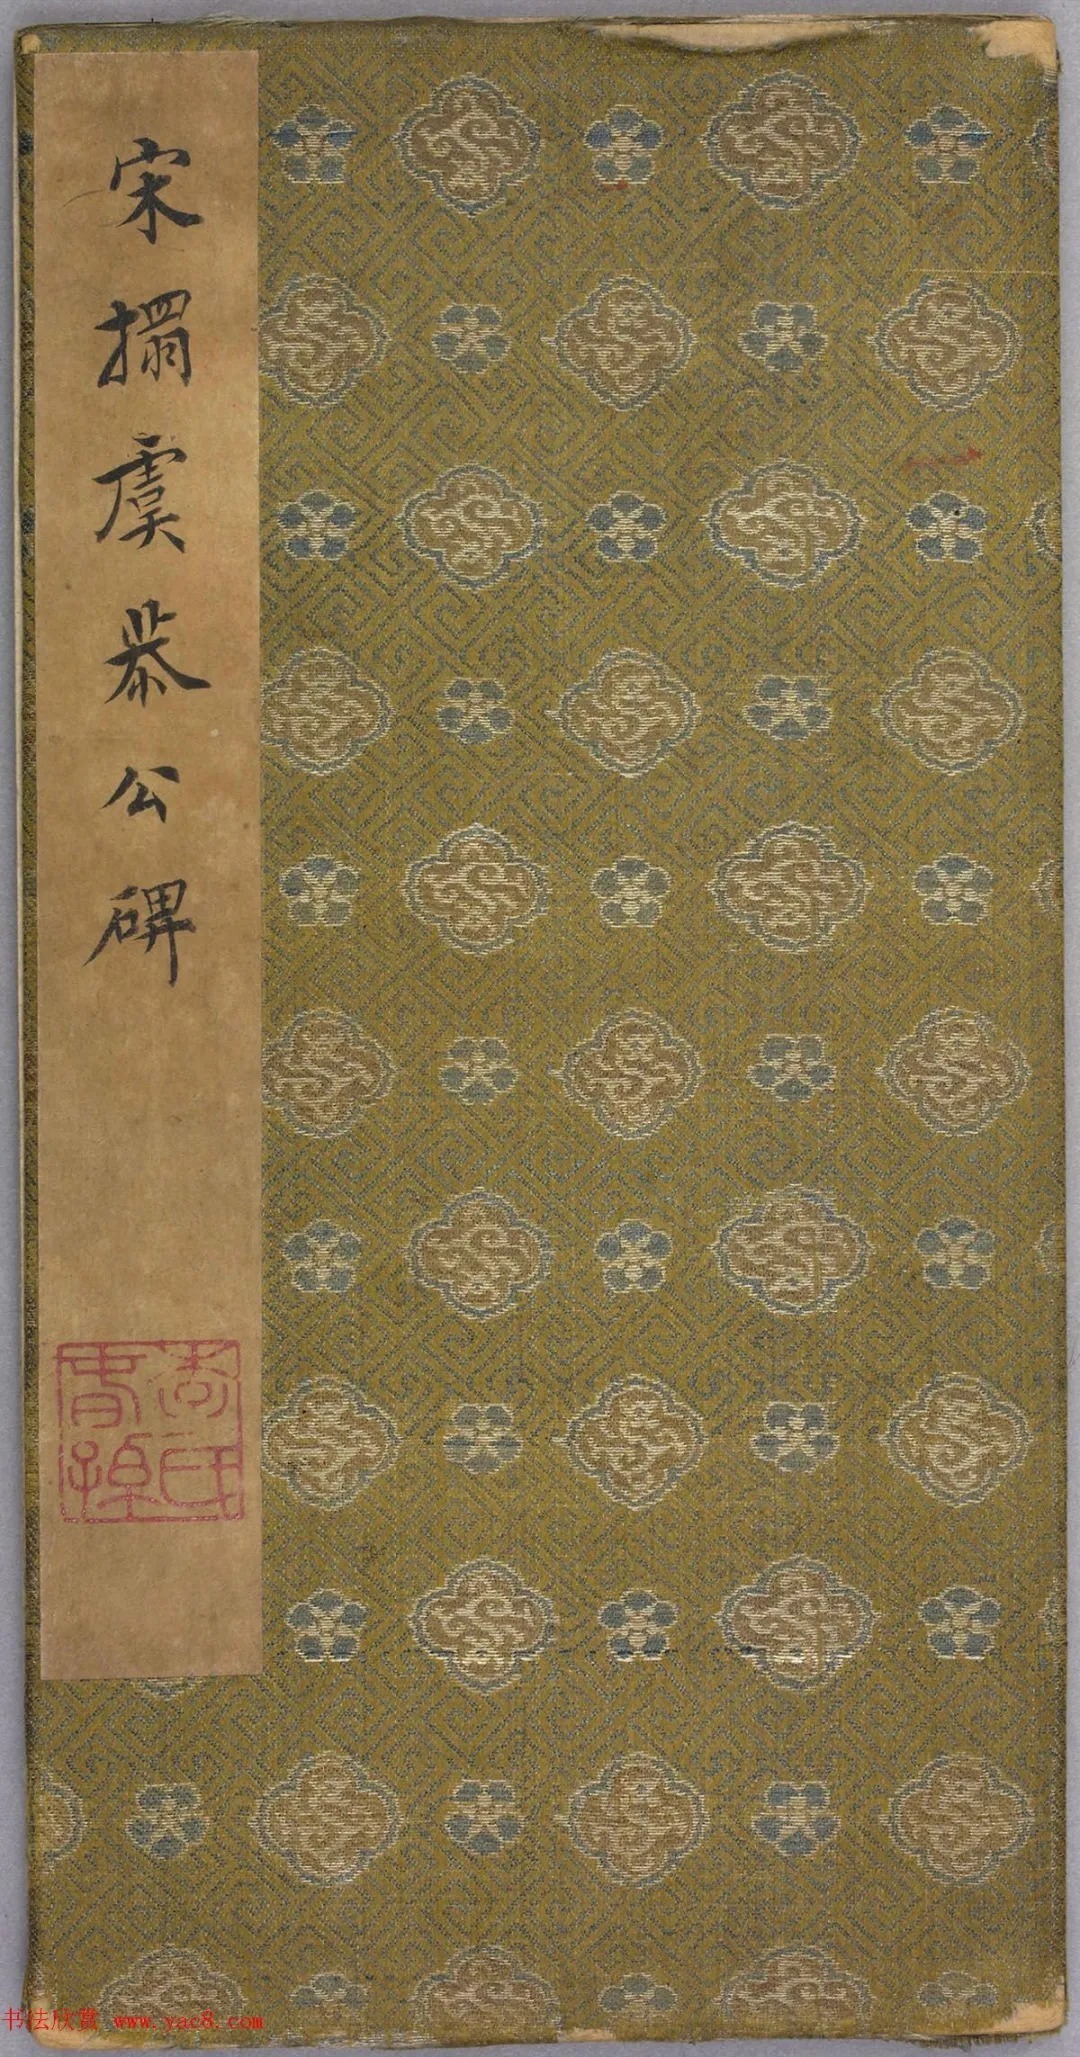 宋搨虞恭公碑
书法欣赏 www.yac8.com